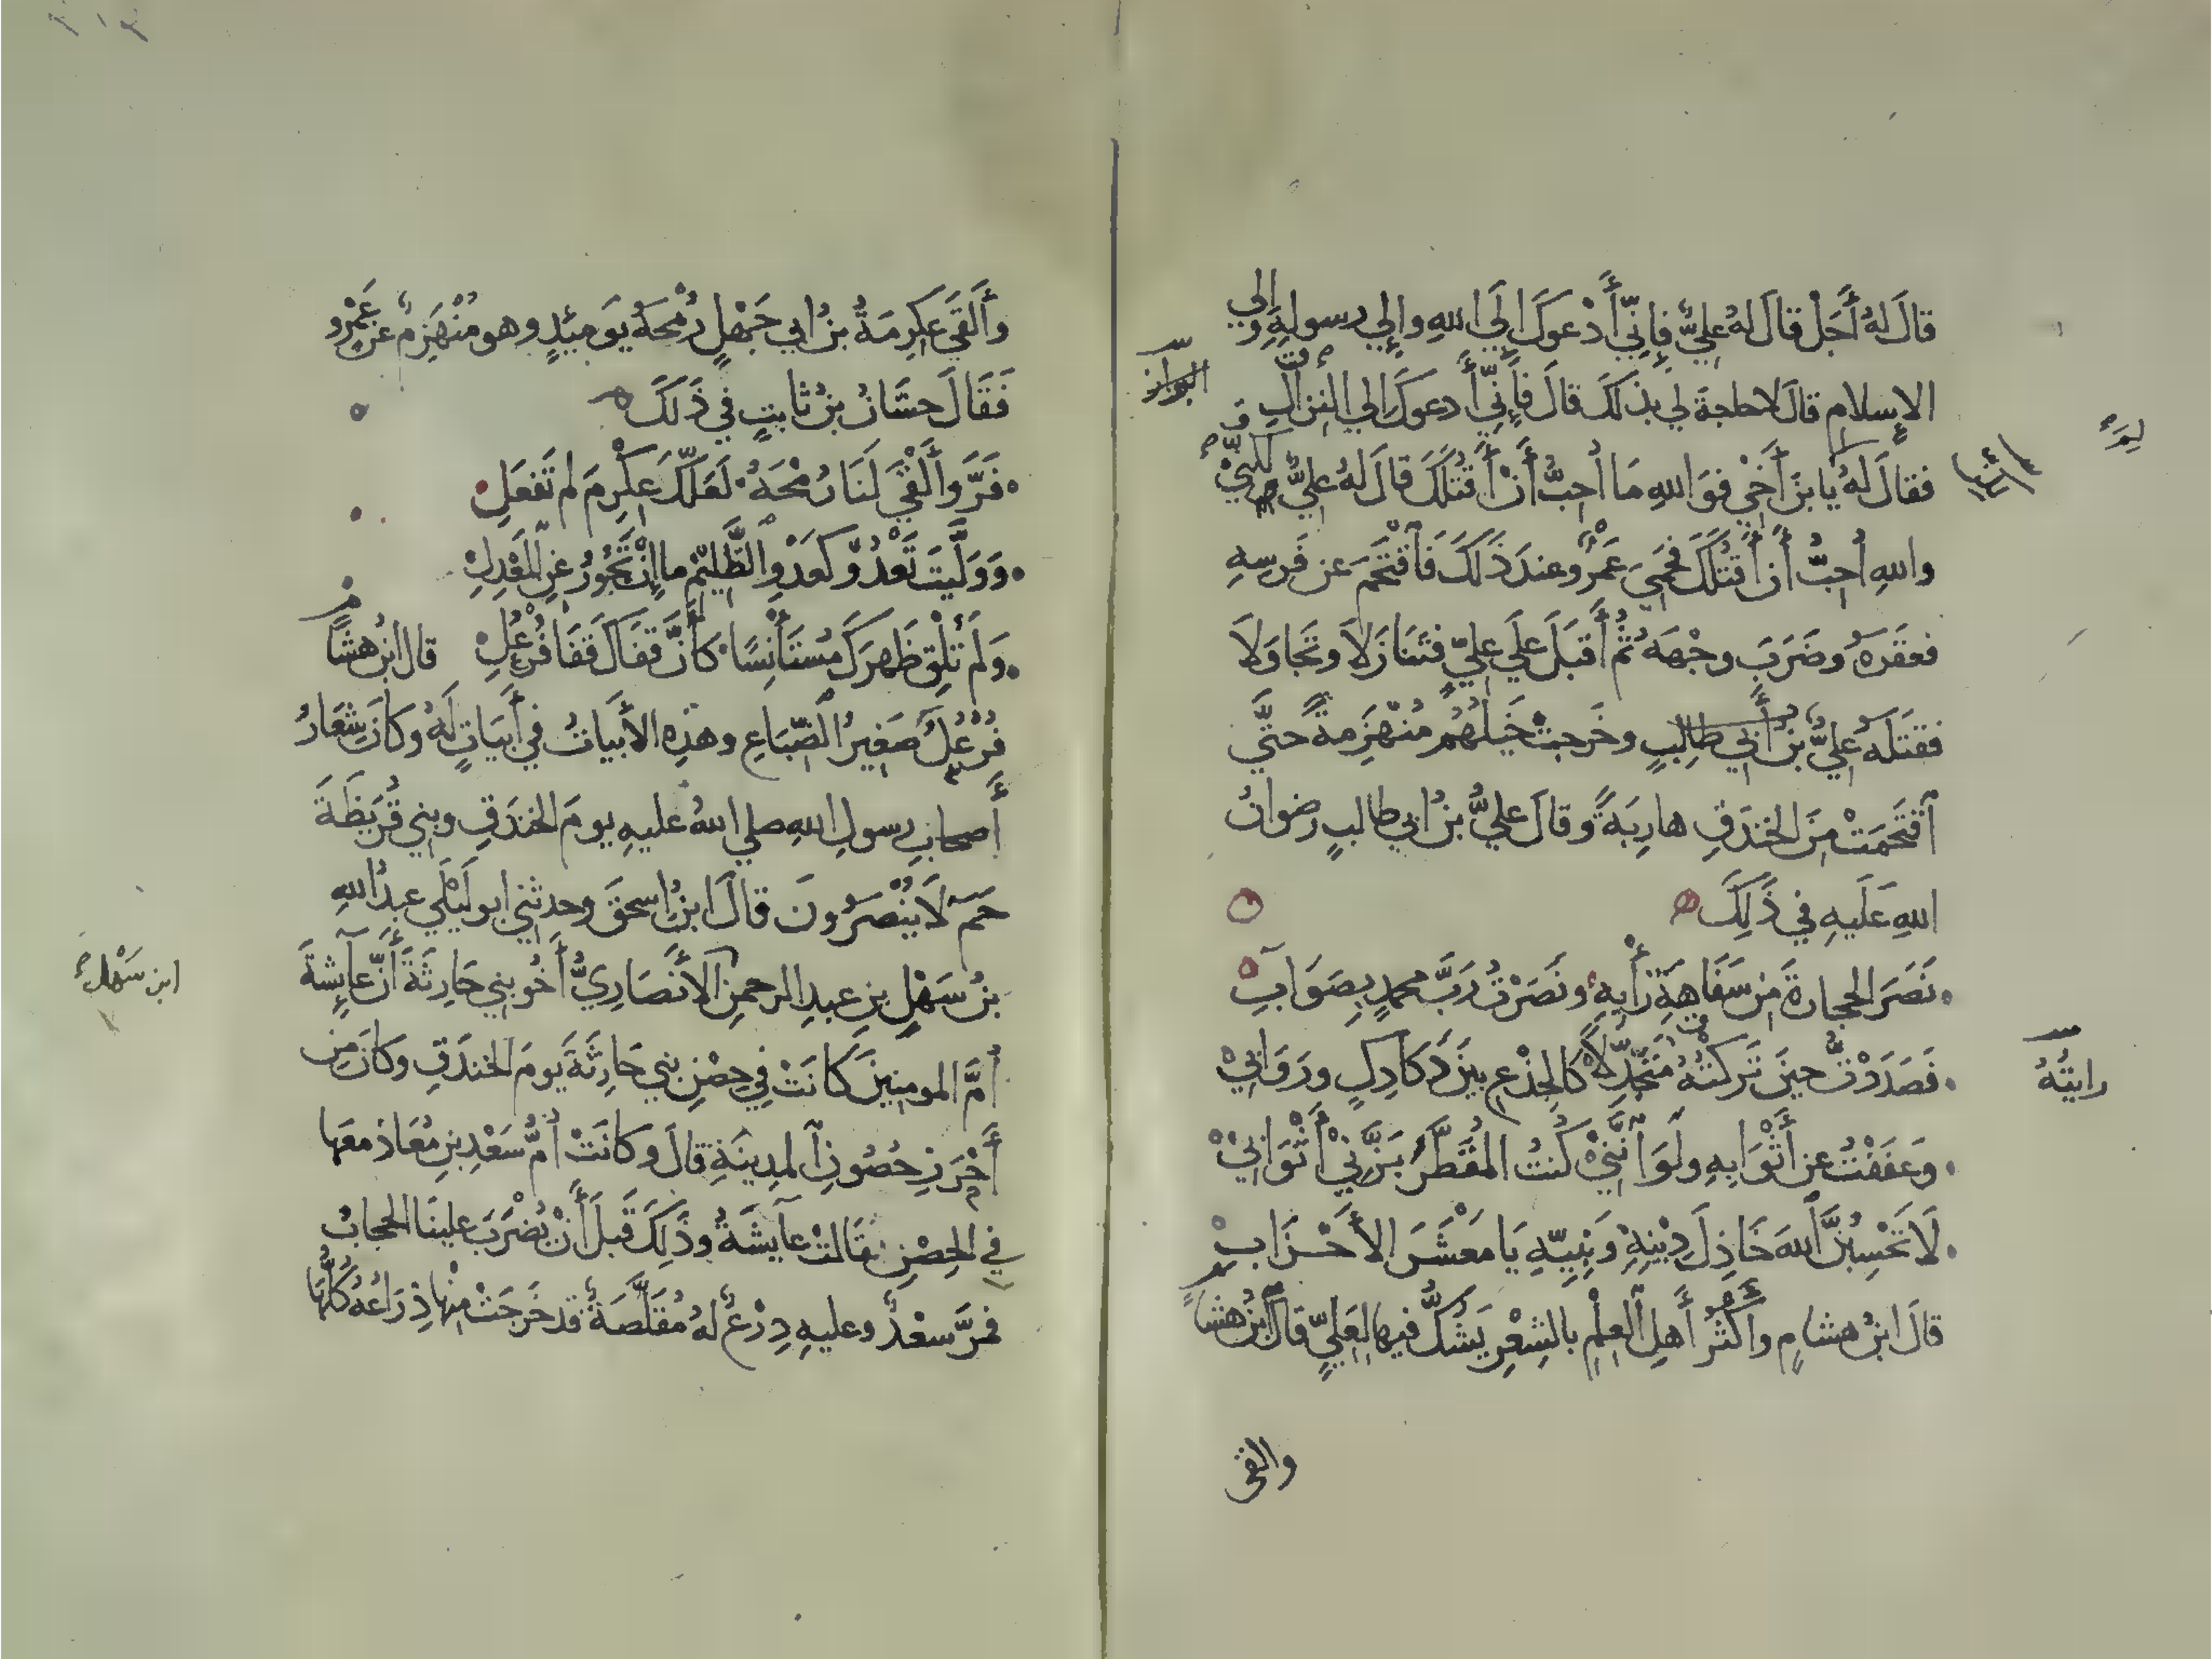 قَالَ لَهُ أَجَلْ قَالَ لَهُ عَلِيٌّ فَإِنِّي أَدْعُوكَ إِلَى اللهِ وإِلي رسولِهِ وَإِلي
الإسلامِ قالَ لا حاجةَ لي بذلكَ قالَ فَإِنِّي أَدعوكَ إلي النزالِ
البراز
فقالَ لَهُ لِمَ يَا بنَ أَخِي فوَاللهِ مَا أُحِبُّ أَنْ أَقتُلَكَ قالَ لهُ عليٌّ لكنِّي
لِمَ
واللهِ أُحِبُّ أَن أَقتُلَكَ فحَمِيَ عَمْرٌو عندَ ذَلكَ فَاقتَحَمَ عن فَرسِهِ
فعقَرَهُ وضَرَبَ وجْهَهُ ثُمَّ أَقبَلَ علَي عليٍّ فتَنَازَلاَ وتَجَاوَلاَ
فقَتَلَهُ عليُّ بنُ أَبي طالبٍ وخَرجتْ خَيلُهُم مُنهَزِمةً حتَّي
اقتَحَمَتْ مِنَ الخندَقِ هارِبَةً وقالَ عليُّ بنُ ابي طالبٍ رضوانُ
اللهِ عَلَيهِ في ذَلِكَ
نَصَرَ الحجارةَ مِن سَفَاهَةِ رَأْيِهِ ونَصَرْتُ رَبَّ محمدٍ بِصَوَابِ
فَصَدَدْتُ حينَ تَركتُهُ مُتَجَدِّلاً كالجِذْعِ بينَ دَكَادِكٍ ورَوَابِي
رايتُهُ
وَعَفَفْتُ عن أَثْوَابِهِ ولَوَ انَّنِي كُنتُ المُقَطَّرَ بَزَّنِي أَثْوَابِي
لَا تَحْسِبُنَّ اللهَ خَاذِلَ دِينِهِ وَنَبِيِّهِ يَا مَعْشَرَ الأَحْزَابِ
قالَ ابنُ هشامٍ وأَكثَرُ أَهلِ العِلْمِ بالشِعْرِ يَشُكُّ فيها لِعَلِيٍّ قالَ ابنُ هشامٍ
والقى
وأَلقَي عِكرِمَةُ بنُ ابي جَهْلٍ رُمْحَهُ يَومَئِذٍ وهو مُنْهَزِمٌ عن عَمْرٍو
فَقَالَ حسَّانُ بنُ ثابتٍ في ذَلكَ
فَرَّ وأَلْقَي لَنَا رُمْحَهُ لَعَلَّكَ عِكْرِمَ لم تَفعَلِ
وَوَلَّيتَ تَعْدُو كعَدْوِ الظَّلِيمِ ما إِنْ تَجُورُ عَنِ المَعْدِلِ
وَلَم تُلْقِ ظَهرَكَ مُستَأنِسًا كأَنَّ قَفَاكَ قَفَا فُرْعُلِ قالَ ابنُ هشامٍ
فُرْعُلٌ صَغِيرُ الضِّبَاعِ وهذِهِ الأَبياتُ في أَبيَاتٍ لَهُ وكَانَ شِعَارُ
أَصحابِ رسولِ اللهِ صلي اللهُ عليهِ يومَ الخندَقِ وبني قُرَيظَةَ
حَمَ لَا يُنْصَرُونَ قالَ ابنُ اسحقَ وحدثني ابو ليلَي عبدُ اللهِ
بنُ سَهْلِ بنِ عبدِ الرحمنِ الأَنصَارِيُّ أَخُو بني حَارِثَةَ أَنَّ عَآيِشةَ
ابن سَهْل
أُمَّ المومنينَ كانَتْ في حِصْنِ بَني حَارِثَةَ يومَ الخندَقِ وكانَ مِن
أَحْرَزِ حُصُونِ المدِينَةِ قالَ وكانَتْ أُمُّ سَعْدِ بنِ مُعَاذٍ معَها
في الحِصْنِ فقَالتْ عآيشَةُ وذَلِكَ قَبلَ أَنْ يُضْرَبَ علينَا الحجابُ
فمَرَّ سعْدٌ وعليهِ دِرْعٌ لهُ مُقَلَّصَةٌ قد خَرجَتْ مِنْها ذِرَاعُهُ كُلُّها